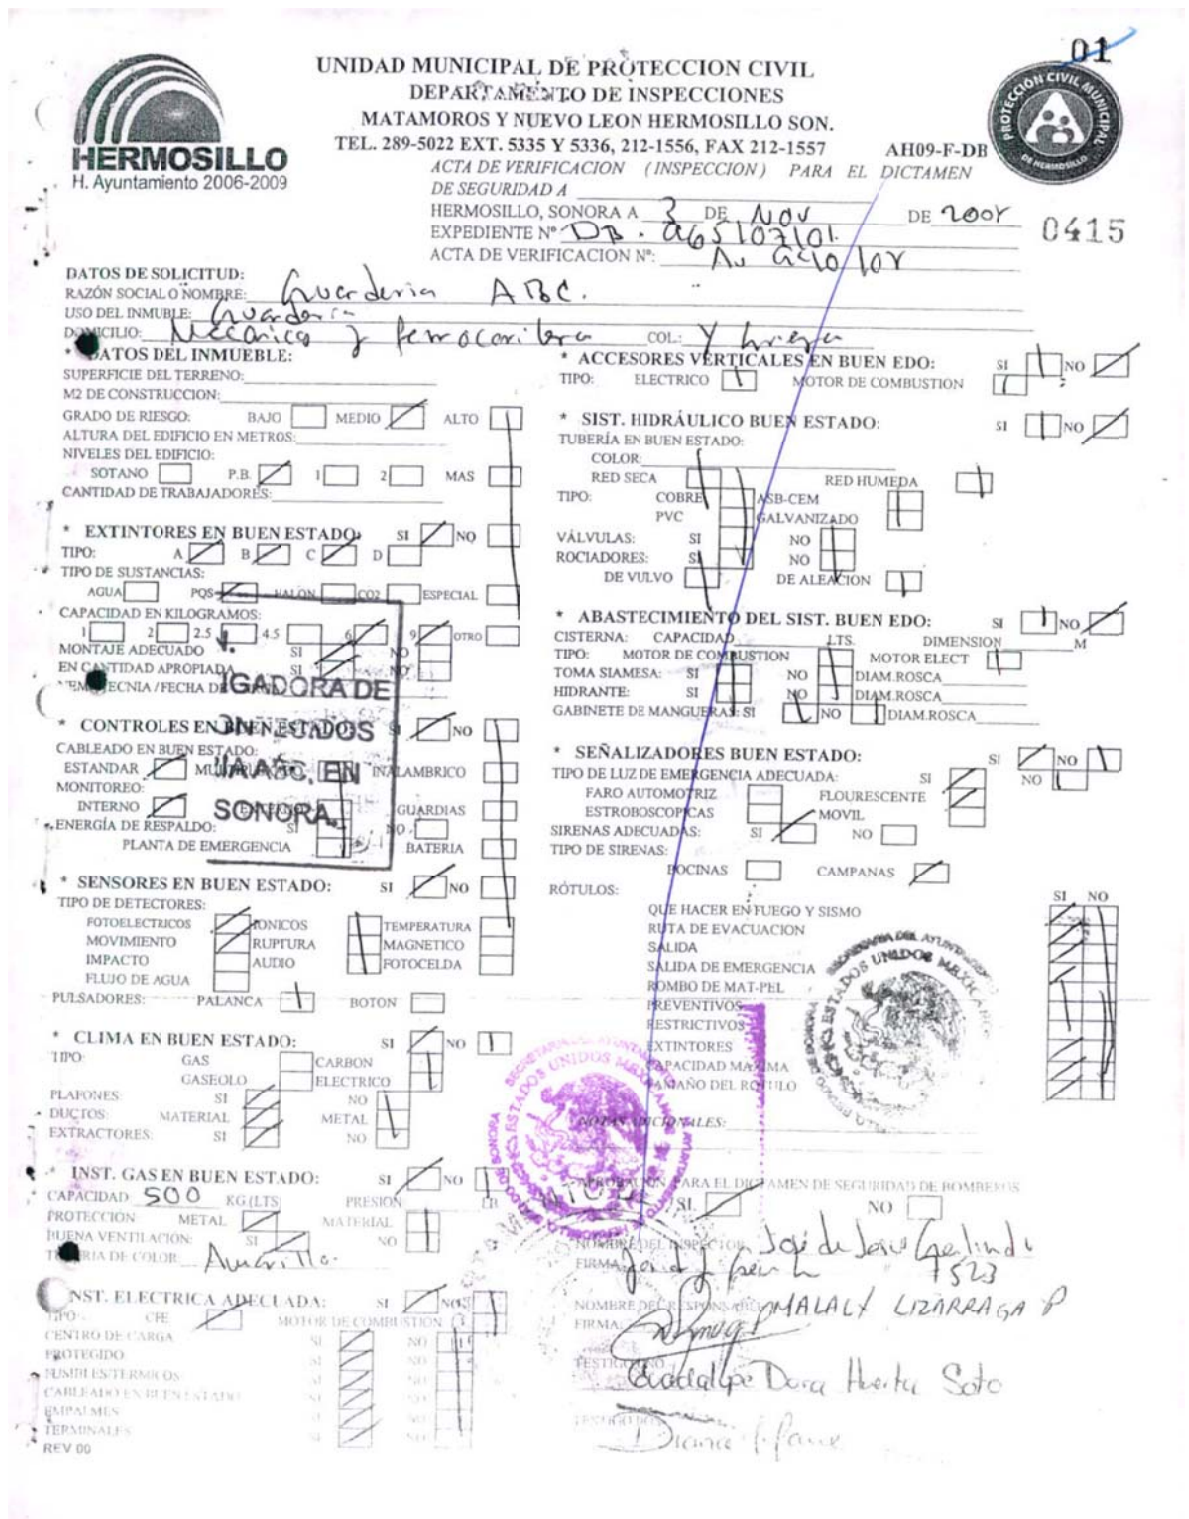 01
UNIDAD MUNICIPAL DE PROTECCION CIVIL
DEPARTAMENTO DE INSPECCIONES
MATAMOROS Y NUEVO LEON HERMOSILLO SON.
TEL. 289-5022 EXT. 5335 Y 5336, 212-1556, FAX 212-1557
AH09-F-DB
HERMOSILLO
H. Ayuntamiento 2006-2009
PROTECCIÓN CIVIL MUNICIPAL
DE HERMOSILLO
ACTA DE VERIFICACION (INSPECCION) PARA EL DICTAMEN
DE SEGURIDAD A
HERMOSILLO, SONORA A 3 DE NOV DE
EXPEDIENTE N° DB.
0415
ACTA DE VERIFICACION N°:
DATOS DE SOLICITUD:
RAZÓN SOCIAL O NOMBRE: Guarderia ABC.
USO DEL INMUBLE: Guarderia
DOMICILIO: Mecánicos y ferrocarilera COL: Y
* DATOS DEL INMUEBLE:
SUPERFICIE DEL TERRENO:
M2 DE CONSTRUCCION:
GRADO DE RIESGO: BAJO MEDIO ALTO
ALTURA DEL EDIFICIO EN METROS:
NIVELES DEL EDIFICIO:
SOTANO P.B. 1 2 MAS
CANTIDAD DE TRABAJADORES:
* EXTINTORES EN BUEN ESTADO: SI NO
TIPO: A B C D
TIPO DE SUSTANCIAS:
AGUA PQS HALON CO2 ESPECIAL
CAPACIDAD EN KILOGRAMOS:
1 2 2.5 4.5 6 9 OTRO
MONTAJE ADECUADO SI NO
EN CANTIDAD APROPIADA SI NO
IGADORA DE
* CONTROLES EN BUEN ESTADO SI NO
CABLEADO EN BUEN ESTADO:
ESTANDAR INALAMBRICO
MONITOREO:
INTERNO GUARDIAS
SONORA.
ENERGÍA DE RESPALDO: SI NO
PLANTA DE EMERGENCIA BATERIA
* SENSORES EN BUEN ESTADO: SI NO
TIPO DE DETECTORES:
FOTOELECTRICOS IONICOS TEMPERATURA
MOVIMIENTO RUPTURA MAGNETICO
IMPACTO AUDIO FOTOCELDA
FLUJO DE AGUA
PULSADORES: PALANCA BOTON
* CLIMA EN BUEN ESTADO: SI NO
TIPO: GAS CARBON
GASEOLO ELECTRICO
PLAFONES: SI NO
DUCTOS: MATERIAL METAL
EXTRACTORES: SI NO
* INST. GAS EN BUEN ESTADO: SI NO
CAPACIDAD 500 KG(LTS PRESION
PROTECCIÓN METAL MATERIAL
BUENA VENTILACIÓN: SI NO
TUBERIA DE COLOR Amarillo.
INST. ELECTRICA ADECUADA: SI NO
TIPO: CFE MOTOR DE COMBUSTION
CENTRO DE CARGA SI NO
PROTEGIDO SI NO
FUSIBLES/TERMICOS SI NO
CABLEADO EN BUEN ESTADO SI NO
EMPALMES SI NO
TERMINALES SI NO
REV 00
* ACCESORES VERTICALES EN BUEN EDO: SI NO
TIPO: ELECTRICO MOTOR DE COMBUSTION
* SIST. HIDRÁULICO BUEN ESTADO: SI NO
TUBERÍA EN BUEN ESTADO:
COLOR:
RED SECA RED HUMEDA
TIPO: COBRE ASB-CEM
PVC GALVANIZADO
VÁLVULAS: SI NO
ROCIADORES: SI NO
DE VULVO DE ALEACION
* ABASTECIMIENTO DEL SIST. BUEN EDO: SI NO
CISTERNA: CAPACIDAD LTS. DIMENSION M
TIPO: MOTOR DE COMBUSTION MOTOR ELECT
TOMA SIAMESA: SI NO DIAM.ROSCA
HIDRANTE: SI NO DIAM.ROSCA
GABINETE DE MANGUERAS: SI NO DIAM.ROSCA
* SEÑALIZADORES BUEN ESTADO: SI NO
TIPO DE LUZ DE EMERGENCIA ADECUADA: SI NO
FARO AUTOMOTRIZ FLOURESCENTE
ESTROBOSCOPICAS MOVIL
SIRENAS ADECUADAS: SI NO
TIPO DE SIRENAS:
BOCINAS CAMPANAS
RÓTULOS: SI NO
QUE HACER EN FUEGO Y SISMO
RUTA DE EVACUACION
SALIDA
SALIDA DE EMERGENCIA
ROMBO DE MAT-PEL
PREVENTIVOS
RESTRICTIVOS
EXTINTORES
CAPACIDAD MAXIMA
TAMAÑO DEL ROTULO
NOTAS ADICIONALES:
APROBACION PARA EL DICTAMEN DE SEGURIDAD DE BOMBEROS
SI NO
NOMBRE DEL INSPECTOR José de Jesus Galindo
FIRMA
NOMBRE DEL RESPONSABLE MALALY LIZARRAGA P
FIRMA:
TESTIGO UNO
Guadalupe Dora Huerta Soto
TESTIGO DOS
Diana